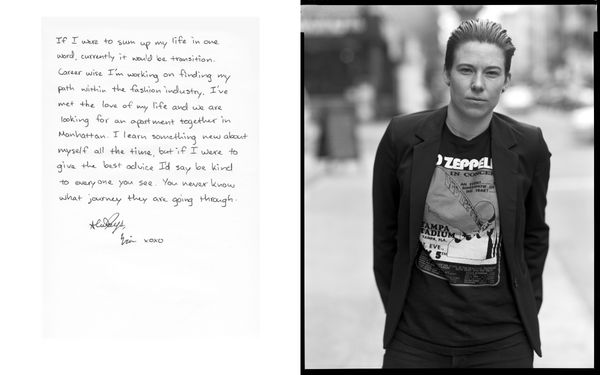 If I were to sum up my life in one
word, currently it would be transition.
Career wise I'm working on finding my
path within the fashion industry. I've
met the love of my life and we are
looking for an apartment together in
Manhattan. I learn something new about
myself all the time, but if I were to
give the best advice I'd say be kind
to everyone you see. You never know
what journey they are going through.
xoxo
D ZEPPEL
IN CONCER
TAMPA
STADIUM
TAMPA, FLA.
EVE.,
5th